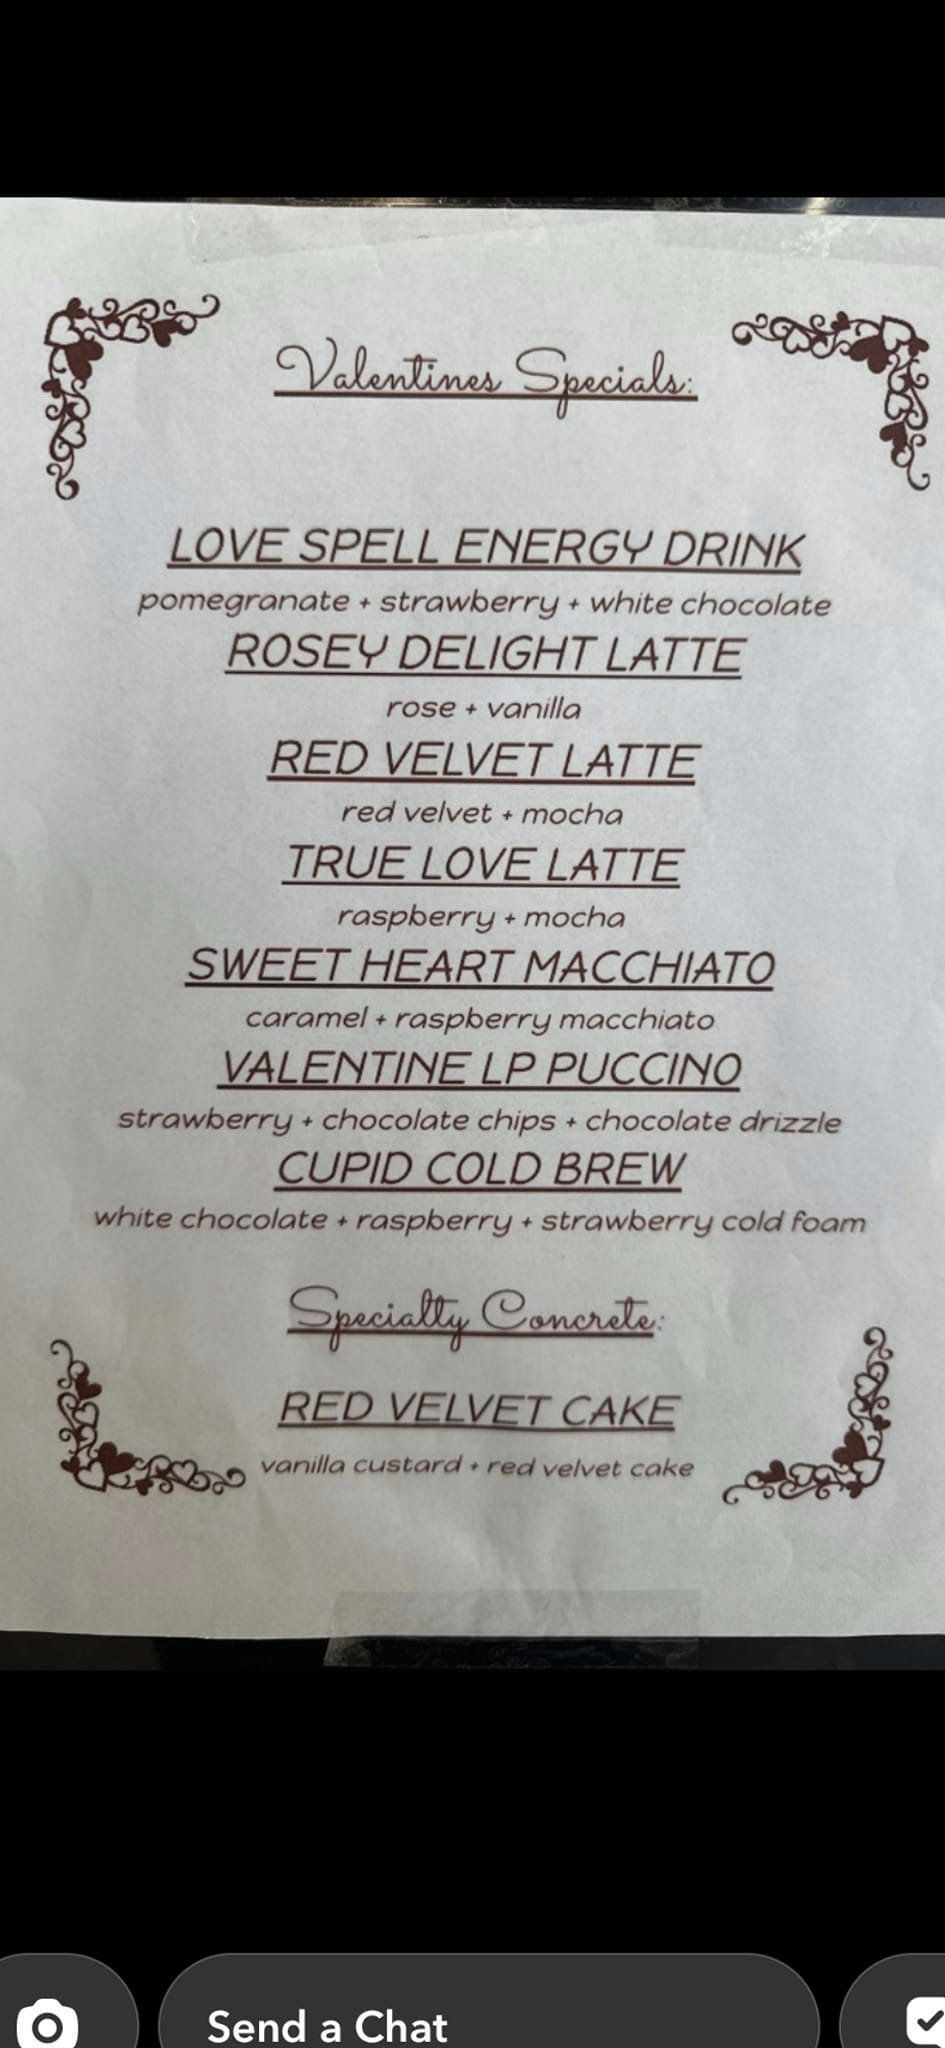 Valentines Specials:
LOVE SPELL ENERGY DRINK
pomegranate + strawberry + white chocolate
ROSEY DELIGHT LATTE
rose + vanilla
RED VELVET LATTE
red velvet + mocha
TRUE LOVE LATTE
raspberry + mocha
SWEET HEART MACCHIATO
caramel + raspberry macchiato
VALENTINE LP PUCCINO
strawberry + chocolate chips + chocolate drizzle
CUPID COLD BREW
white chocolate + raspberry + strawberry cold foam
Specialty Concrete:
RED VELVET CAKE
vanilla custard + red velvet cake
Send a Chat